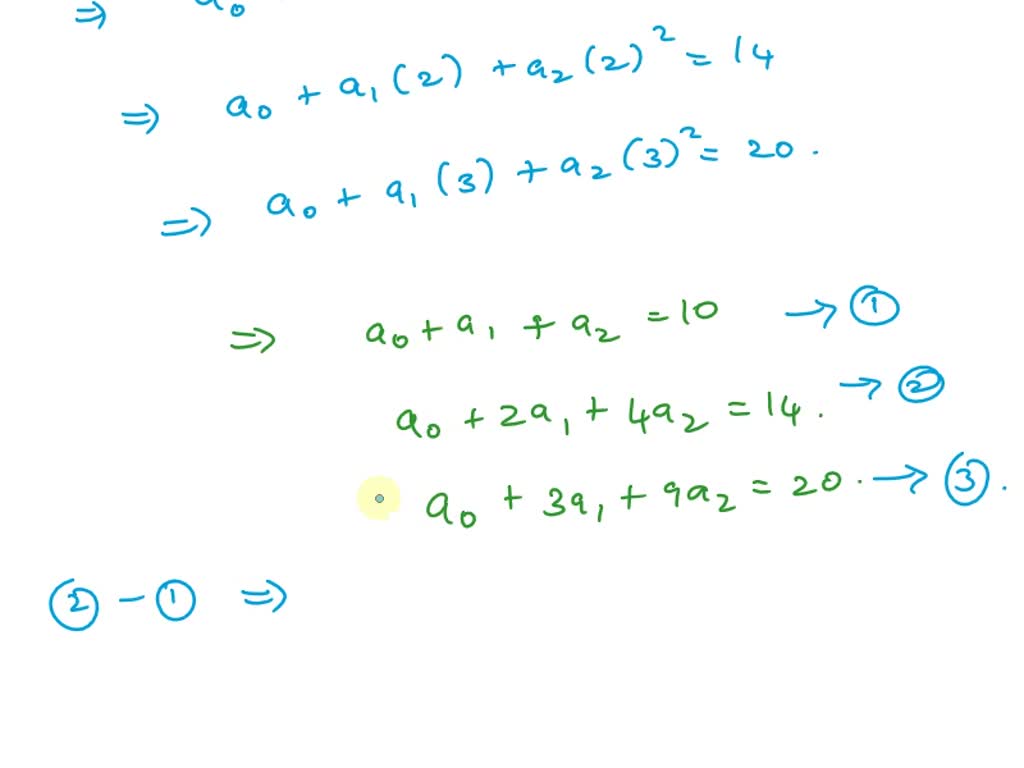 ⇒ a₀
⇒ a₀ + a₁(2) + a₂(2)² = 14
⇒ a₀ + a₁(3) + a₂(3)² = 20.
⇒ a₀ + a₁ + a₂ = 10 → ①
a₀ + 2a₁ + 4a₂ = 14. → ②
a₀ + 3a₁ + 9a₂ = 20. → ③.
② - ① ⇒